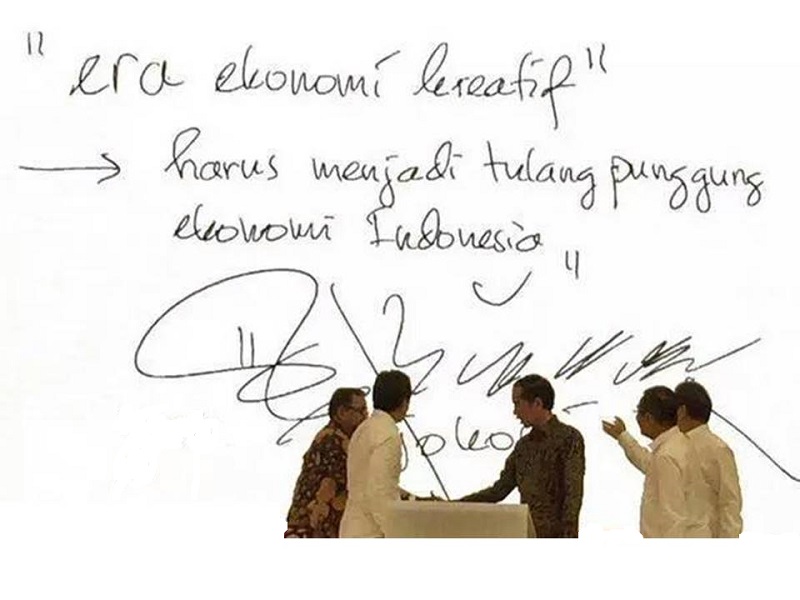 "era ekonomi kreatif"
→ harus menjadi tulang punggung
ekonomi Indonesia"
Joko